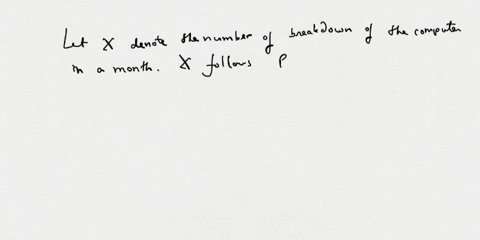 Let X denote the number of breakdown of the computer
in a month. X follows P